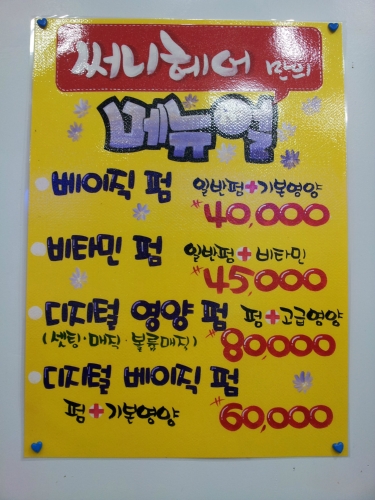 써니헤어 만의
메뉴얼
베이직 펌 일반펌+기본영양
₩40,000
비타민 펌 일반펌+비타민
₩45,000
디지털 영양 펌 펌+고급영양
(셋팅·매직·볼륨매직) ₩80000
디지털 베이직 펌
펌+기본영양 ₩60,000